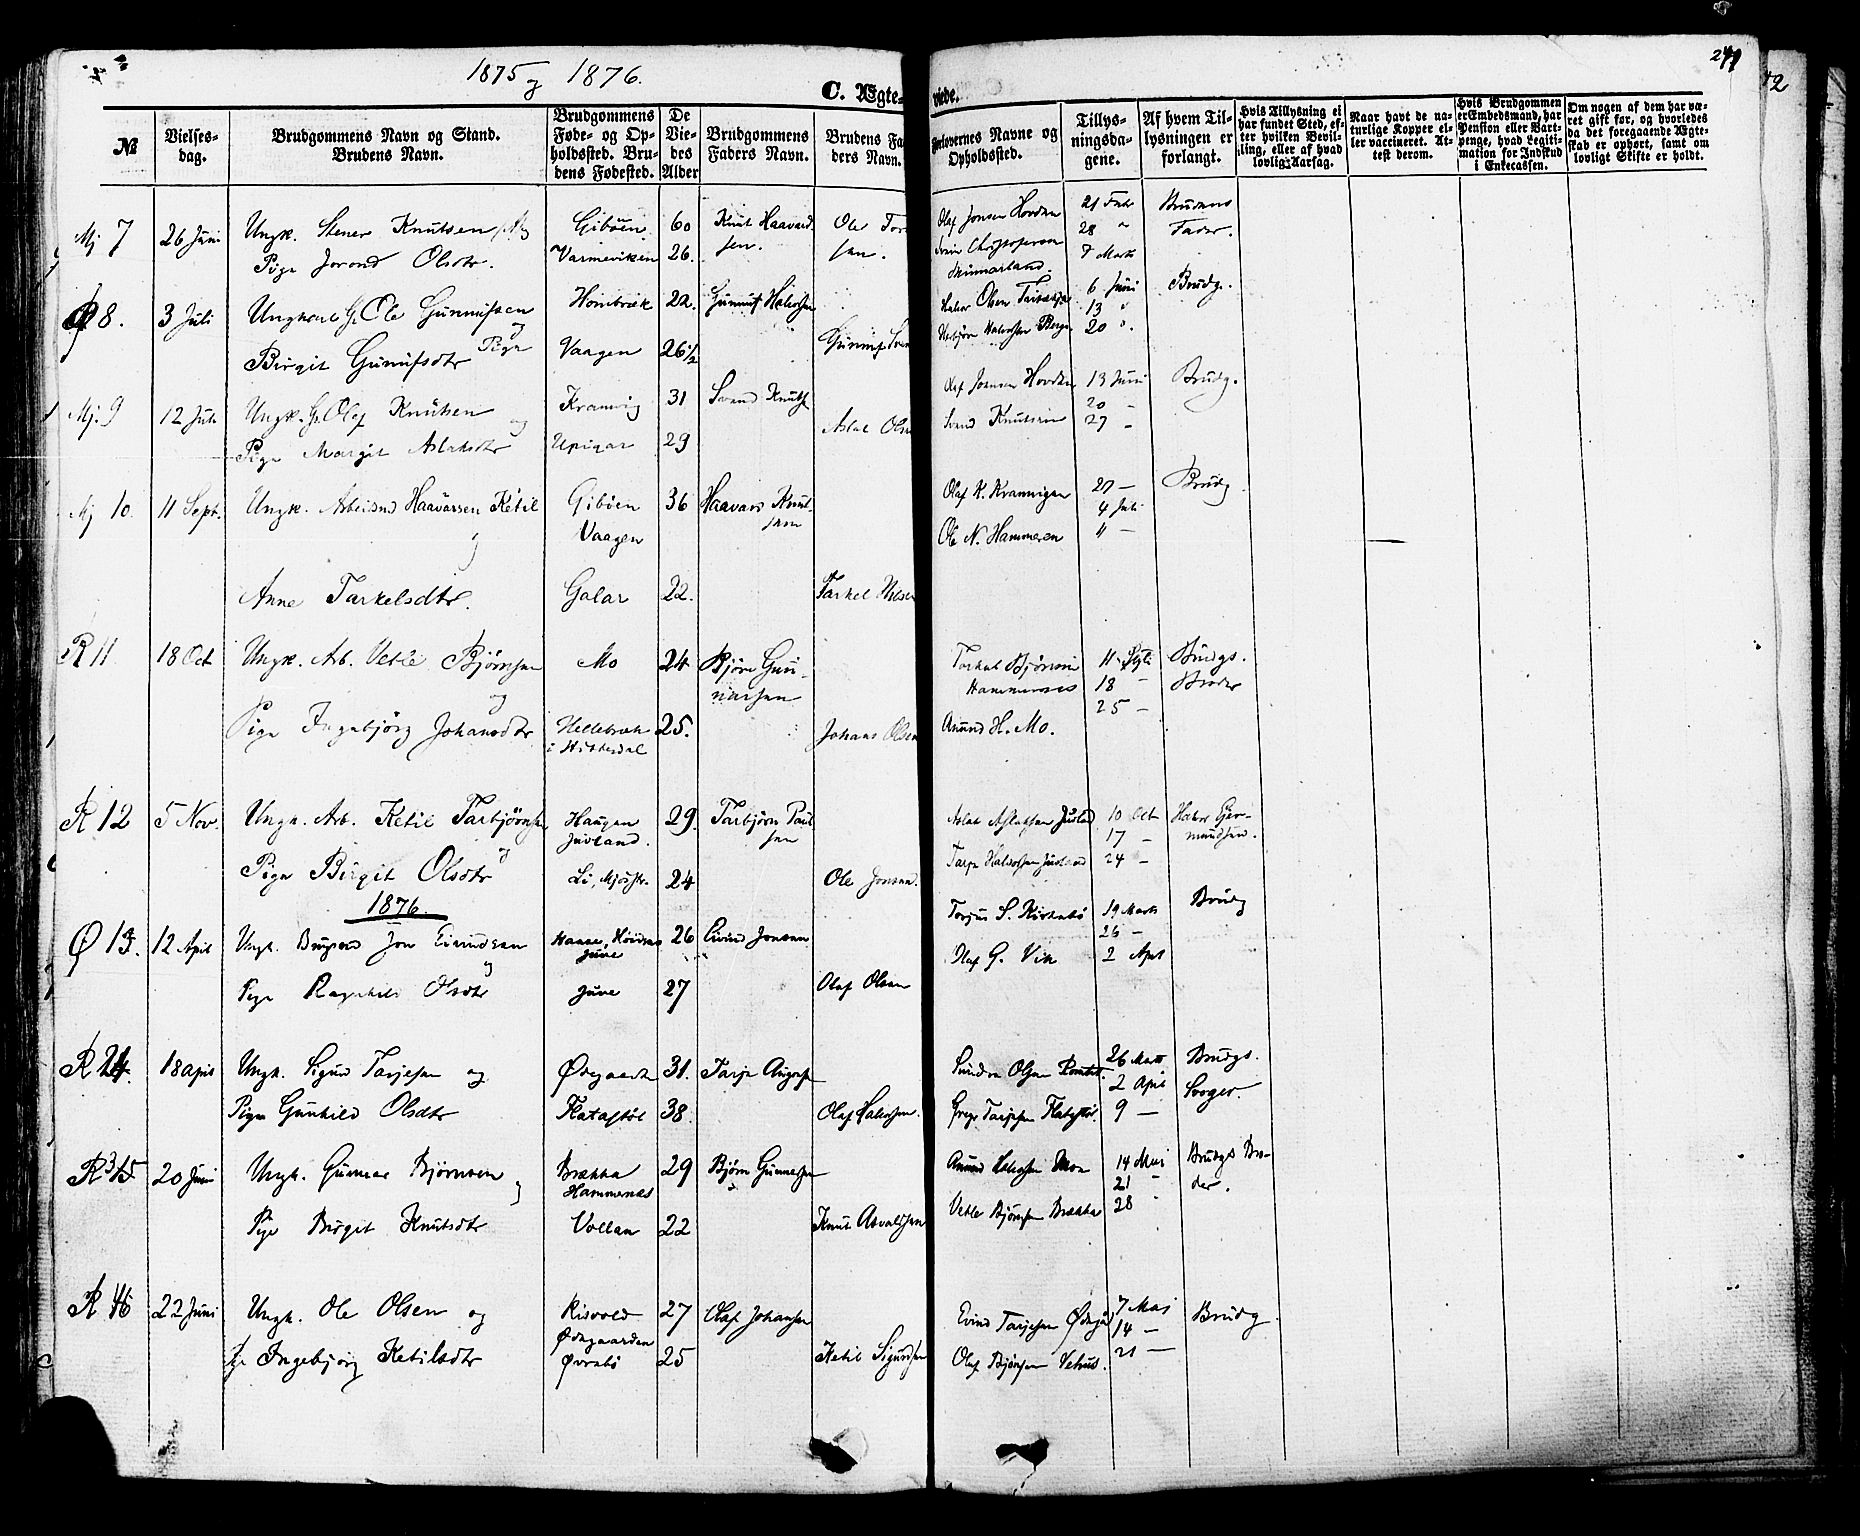 1875 og 1876.
C. Ægteviede.
241
42
№
Vielsesdag.
Brudgommens Navn og Stand.
Brudens Navn.
Brudgommens Føde- og Opholdssted. Brudens Fødested.
De Viedes Alder
Brudgommens Faders Navn.
Brudens Faders Navn.
Forlovernes Navne og Opholdssted.
Tillysningsdagene.
Af hvem Tillysningen er forlangt.
Hvis Tillysning ei har fundet Sted, efter hvilken Bevilling, eller af hvad lovlig Aarsag.
Naar havt de naturlige Kopper eller vaccineret. Attest derom.
Hvis Brudgommen er Embedsmand, har Pension eller Vartpenge, hvad Legitimation for Indskud i Enkecassen.
Om nogen af dem har været gift før, og hvorledes da det foregaaende Ægteskab er ophørt, samt om lovligt Skifte er holdt.
Mj 7 26 Juni Ungk. Stener Knutsen Gibøen 60 Knut Haavardsen. Olaf Jonsen Hovden 21 Febr Brudens
Pige Jorond Olsdtr. Varmeviken 26. 28 " Fader.
7 Marts
Ø 8. 3 Juli Ungkarl G. Ole Gunnufsen og Hombræk 22. Gunnuf Halvorsen Halvor Olsen 6 Juni Brudg.
13 "
Pige Birgit Gunufsdtr Vaagen 26½ Gunnuf 20 ".
Mj. 9 12 Juli Ungk. G. Olaf Knutsen og Kramvig 31 Svend Knuts Olaf Jonsen Hovden 13 Juni Brudg.
20 -
Pige Margit Aslaksdtr 29 Aslak Olsen Svend Knutsen 27 -
Mj 10. 11 Sept. Ungk. Arbeidsmd Haavarsen Ketil Gibøen 36 Haavars Knutsen Olaf K. Kramvigen 27 - Brudg.
og Vaagen 4 Juli
Ole N. Hammeren 11 -
Anne Tarkelsdtr. Galar 22. Tarkel Nilsen
R 11 18 Oct Ungk. Arb. Vetle Bjørnsen Mo 24 Bjørn Gunnarsen Torkel Bjørnsen 11 Brudgs.
og Hammernes 18 - Broder
25 -
Pige Ingebjørg Johansdtr Hellebræk i Hitterdal 25. Johans Olsen Anund H. Mo.
R 12 5 Nov. Ungk. Arb. Ketil Tarbjørnsen Haugen Juvland. 29. Tarbjørn Paulsen Aslak Aslaksen Juvland 10 Oct Halvor Gjermundsen.
og 17 -
Pige Birgit Olsdtr Li, Mjøsstr. 24 Ole Jonsen. Tarje Halvorsen Juvland 24 -
1876.
Ø 13. 12 April Ungk. Brugsmd Jon Eivindsen Juve 26 Eivind Jonsen Torjus S. 19 Marts Brudg
og 26 -
Pige Ragnhild Olsdtr Juve 27 Olaf Olsen Olaf G. Vik 2 Apr
R 24. 18 April Ungk. Sigurd Tarjesen og Ødegaarden 31. Tarje Olsen 26 Marts Brudgs.
2 April Svoger.
Pige Gunhild Olsdtr Flatastøl 38. Olaf Halvorsen. Tarjesen Flatastøl. 9 -
R 315 20 Juni Ungk. Gunnar Bjørnsen Brækka 29 Bjørn Gunnarsen Anund Halvorsen Moen 14 Mai Brudgs Broder.
og Hammernes 21 "
Pige Birgit Knutsdtr Vollan 22 Knut Asvaldsen Vetle Bjørnsen Brækka 28 "
R 46 22 Juni Ungk. Ole Olsen og Risvold 27 Olaf Johansen Eivind Tarjesen 7 Mai Brudg
Ødegaarden 14 -
Pige Ingebjørg Ketilsdtr Øvrabø 25 Ketil Sigurdsen Olaf Bjørnsen Vehus. 21 -